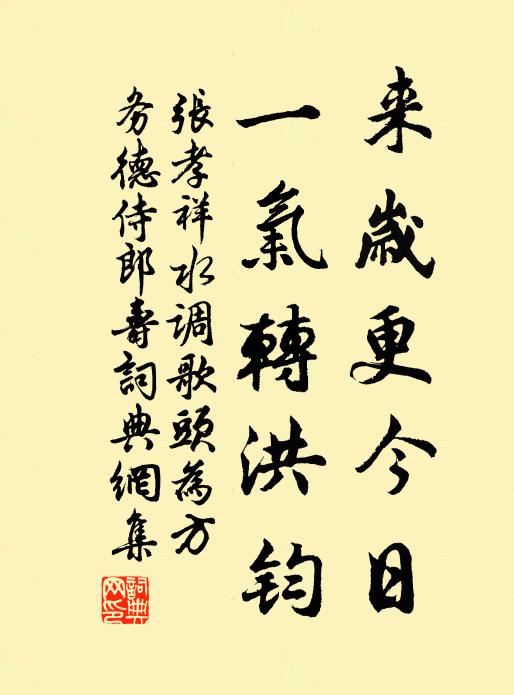 来歲更今日
一氣轉洪鈞
張孝祥水調歌頭為方
务德侍郎壽詞典網集
詞典网印